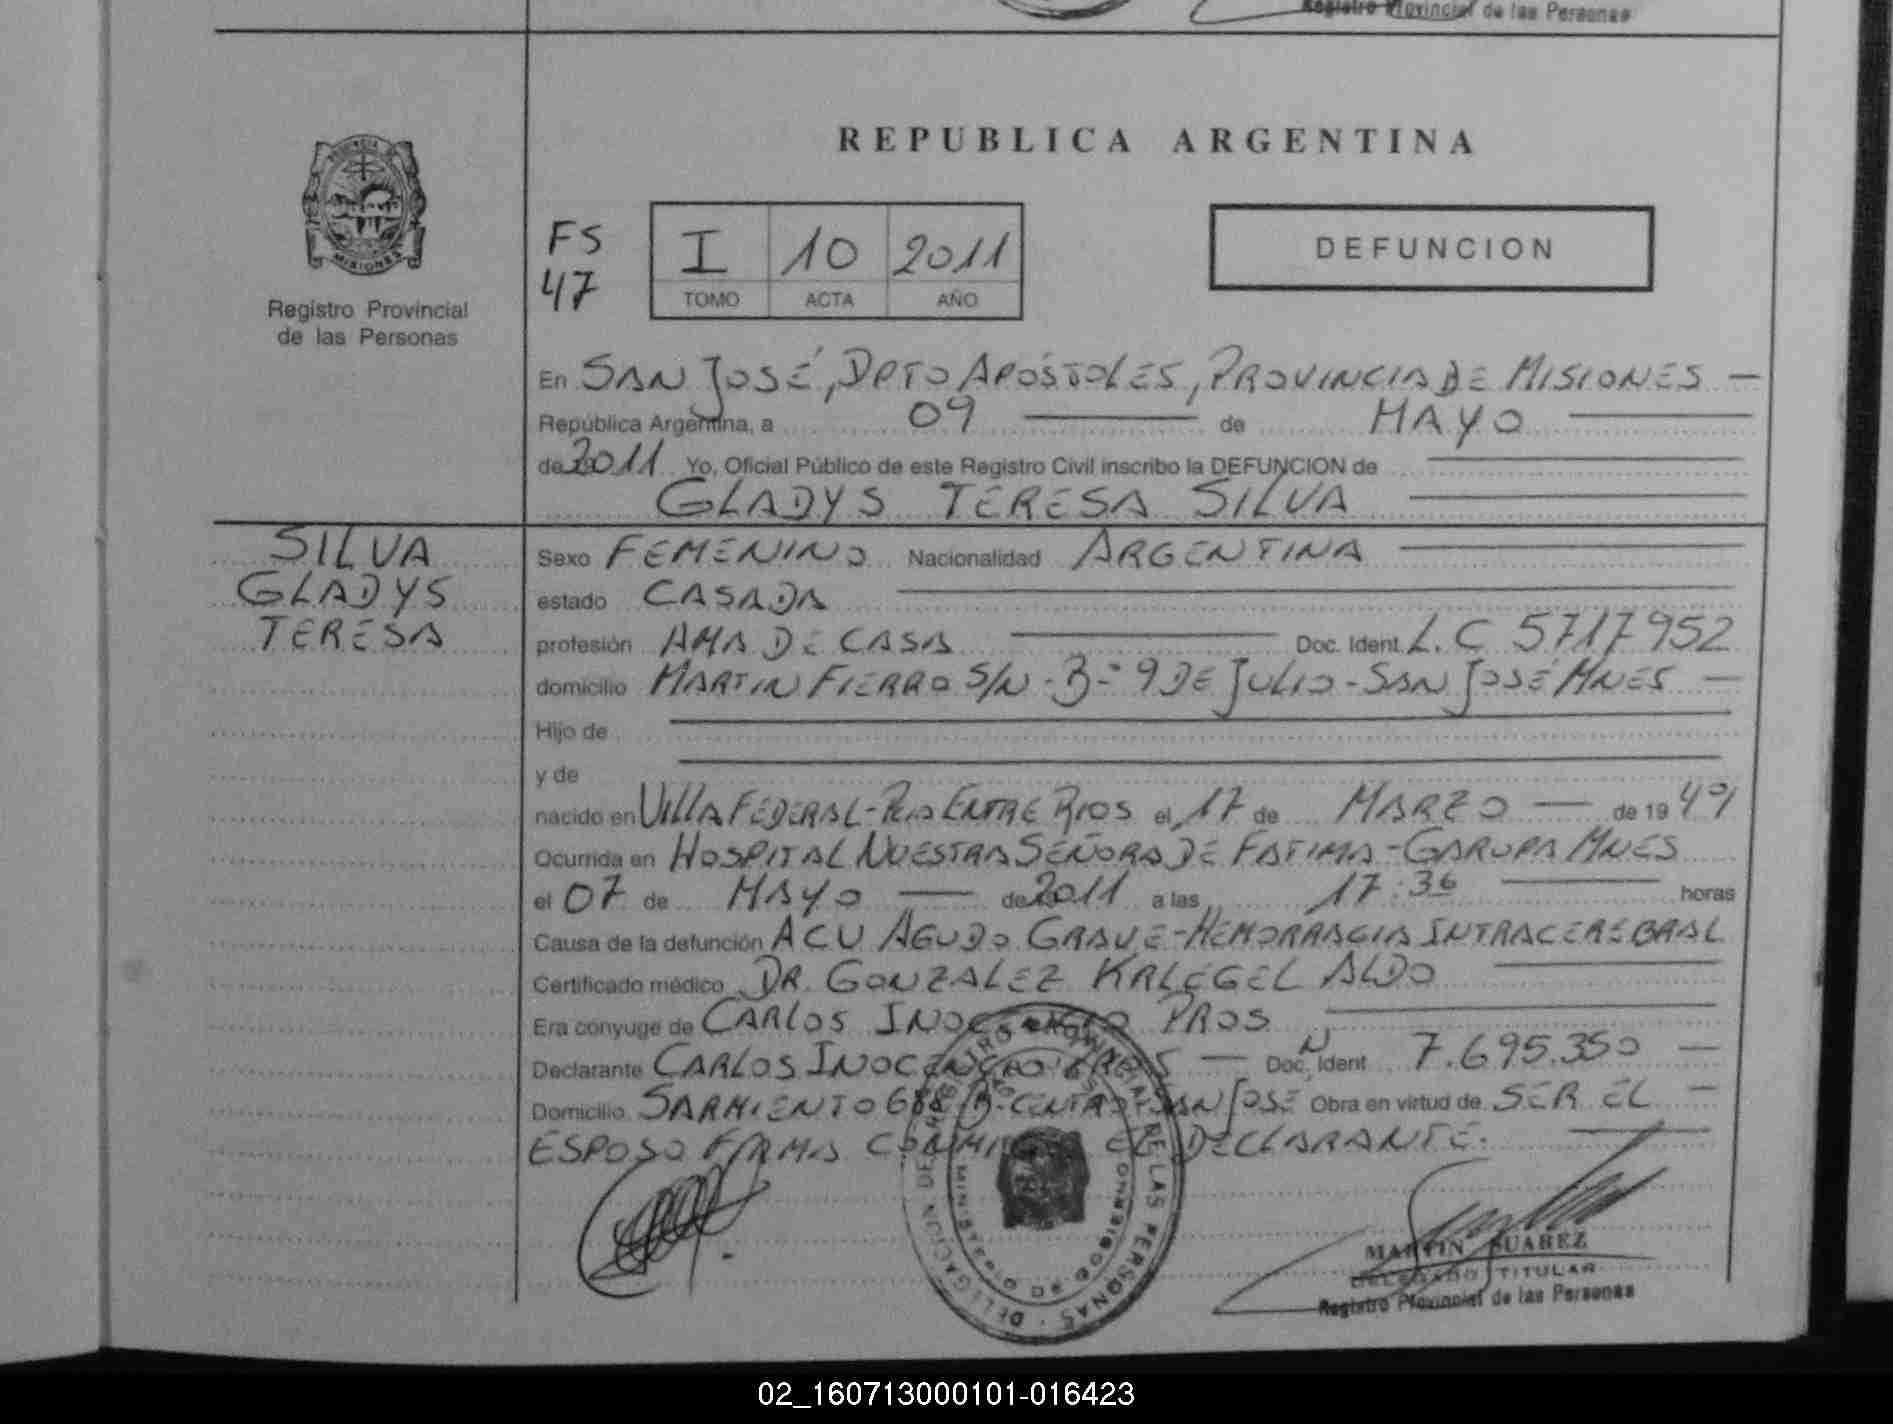 Registro Provincial de las Personas
REPUBLICA ARGENTINA
FS
47
I 10 2011
TOMO ACTA AÑO
DEFUNCION
PROVINCIA DE
MISIONES
Registro Provincial
de las Personas
En SAN JOSÉ, DPTO APÓSTOLES, PROVINCIA DE MISIONES —
República Argentina, a 09 de MAYO
de 2011 Yo, Oficial Público de este Registro Civil inscribo la DEFUNCION de
GLADYS TERESA SILVA
SILVA
GLADYS
TERESA
Sexo FEMENINO Nacionalidad ARGENTINA
estado CASADA
profesión AMA DE CASA Doc. Ident. L.C 5717952
domicilio MARTIN FIERRO S/N - B-º 9 DE JULIO - SAN JOSÉ MNES —
Hijo de
y de
nacido en VILLA FEDERAL - PCIA ENTRE RIOS el 17 de MARZO — de 19 49
Ocurrida en HOSPITAL NUESTRA SEÑORA DE FATIMA - GARUPA MNES
el 07 de MAYO — de 2011 a las 17:36 horas
Causa de la defunción ACU AGUDO GRAVE - HEMORRAGIA INTRACEREBRAL
Certificado médico DR. GONZALEZ KRLEGEL ALDO
Era cónyuge de CARLOS INOCENCIO PROS
Declarante CARLOS INOCENCIO PROS — Doc. N Ident. 7.695.350 —
Domicilio SARMIENTO 688 B-CENTRO-SAN JOSE Obra en virtud de SER EL —
ESPOSO FIRMA CONMIGO EL DECLARANTE.
MARTIN SUAREZ
DELEGADO TITULAR
Registro Provincial de las Personas
02_160713000101-016423